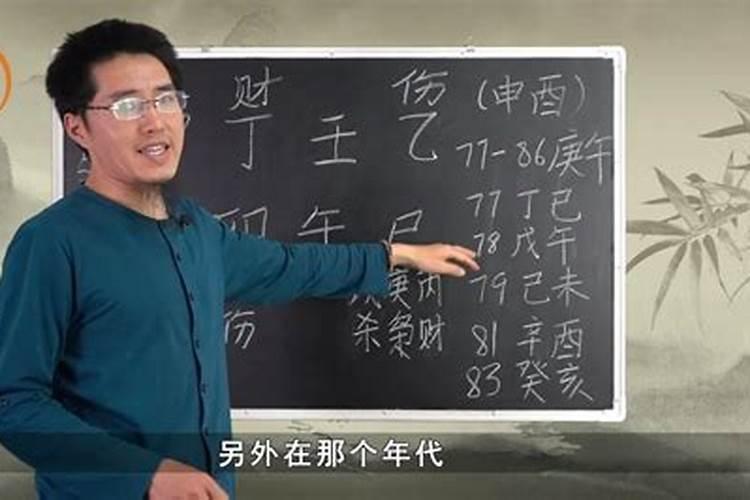 财 伤 (申酉)
丁 壬 乙 77-86庚午
77 丁巳
卯 午 巳 78 戊午
庚丙 79 己未
伤 杀枭财 81 辛酉
83 癸亥
另外在那个年代